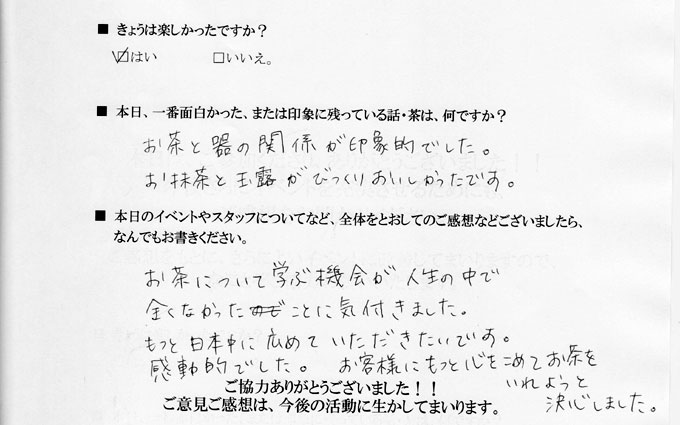 ■ きょうは楽しかったですか？
☑はい　□いいえ。
■ 本日、一番面白かった、または印象に残っている話・茶は、何ですか？
お茶と器の関係が印象的でした。
お抹茶と玉露がびっくりおいしかったです。
■ 本日のイベントやスタッフについてなど、全体をとおしてのご感想などございましたら、
なんでもお書きください。
お茶について学ぶ機会が人生の中で
全くなかったことに気付きました。
もっと日本中に広めていただきたいです。
感動的でした。 お客様にもっと心をこめてお茶を
いれようと
決心しました。
ご協力ありがとうございました！！
ご意見ご感想は、今後の活動に生かしてまいります。